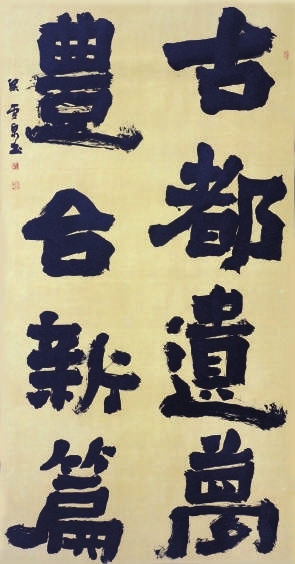 古都遺夢
豐台新篇